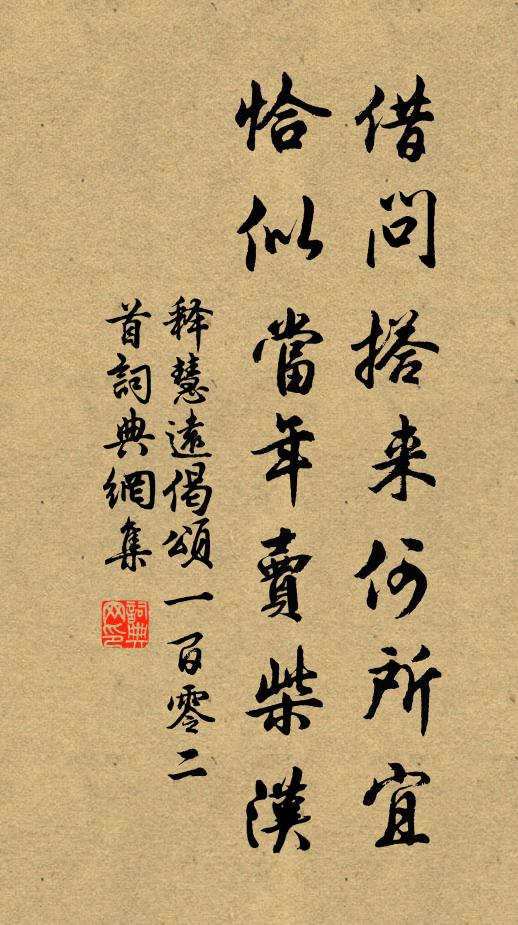 借问搭来何所宜
恰似當年賣柴漢
释慧遠偈頌一百零二
首詞典網集
詞典网印